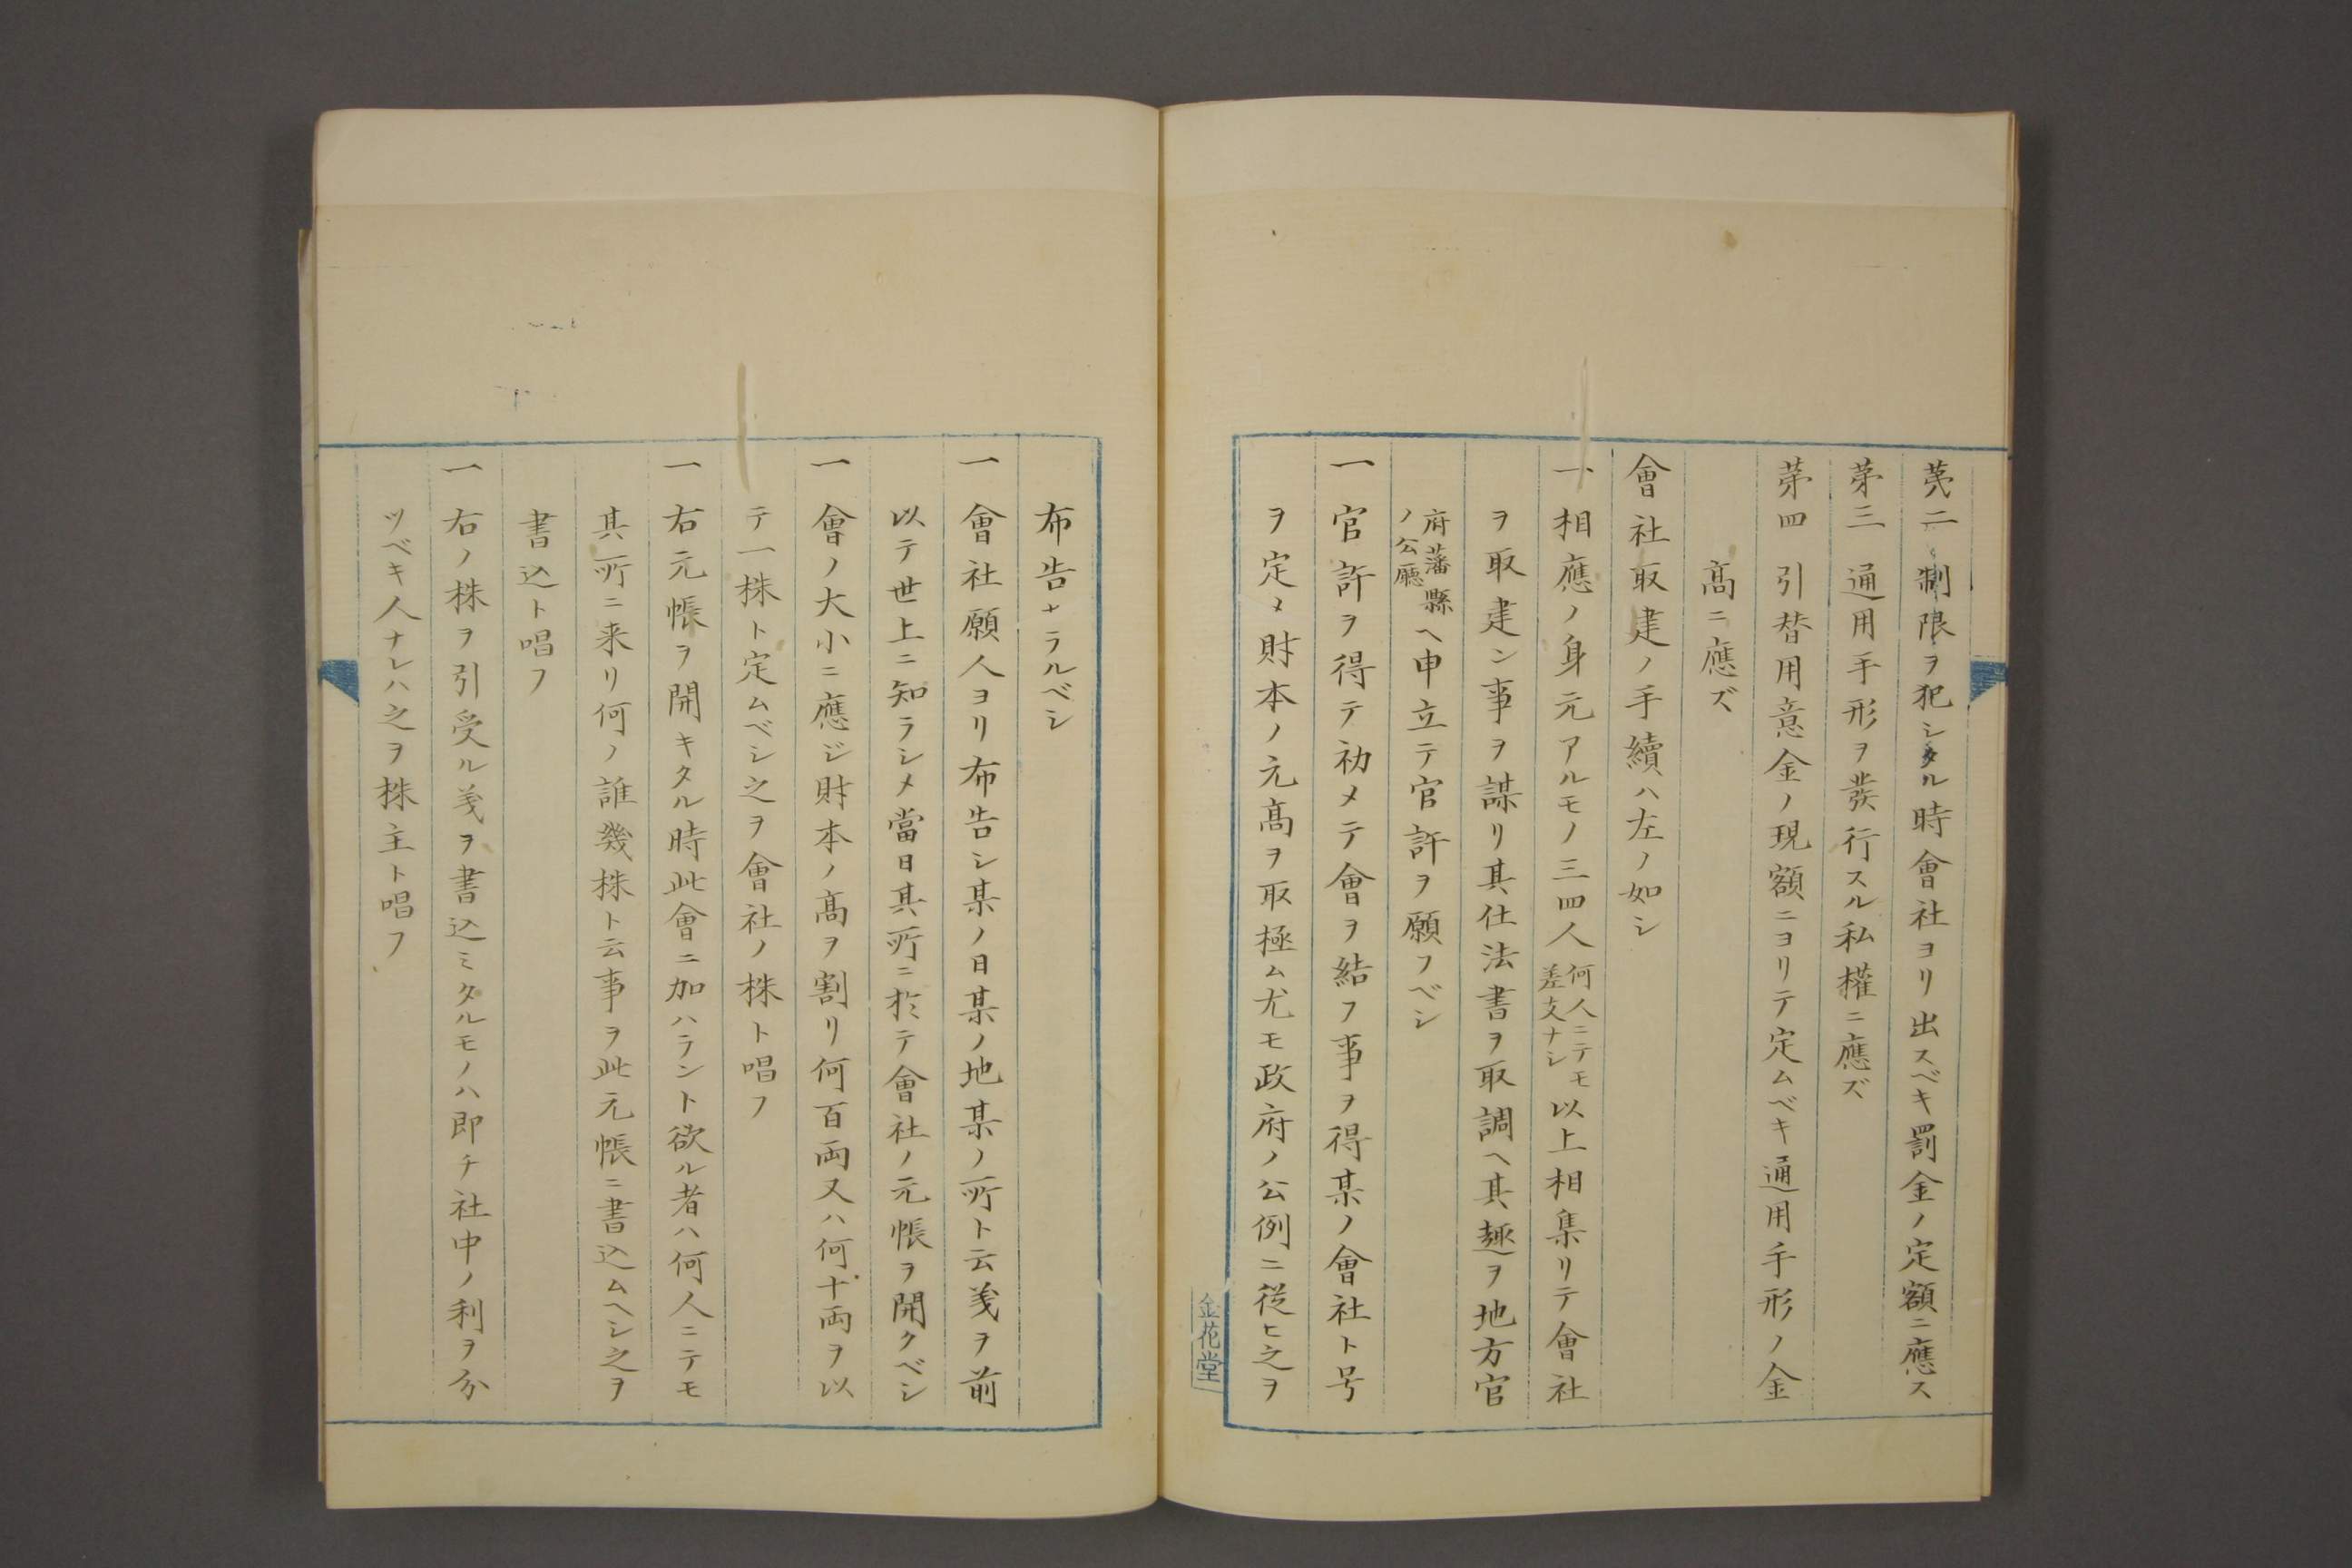 第二 制限ヲ犯シタル時會社ヨリ出スベキ罰金ノ定額ニ應ス
第三 通用手形ヲ發行スル私權ニ應ズ
第四 引替用意金ノ現額ニヨリテ定ムベキ通用手形ノ金
高ニ應ズ
會社取建ノ手續ハ左ノ如シ
一 相應ノ身元アルモノ三四人何人ニテモ差支ナシ以上相集リテ會社
ヲ取建ン事ヲ謀リ其仕法書ヲ取調ヘ其趣ヲ地方官
府藩縣ノ公廳ヘ申立テ官許ヲ願フベシ
一 官許ヲ得テ初メテ會ヲ結フ事ヲ得某ノ會社ト号
ヲ定メ財本ノ元高ヲ取極ム尤モ政府ノ公例ニ從ヒ之ヲ
金花堂
布告ナラルベシ
一 會社願人ヨリ布告シ某ノ日某ノ地某ノ所ト云義ヲ前
以テ世上ニ知ラシメ當日其所ニ於テ會社ノ元帳ヲ開クベシ
一 會ノ大小ニ應ジ財本ノ高ヲ割リ何百両又ハ何十両ヲ以
テ一株ト定ムベシ之ヲ會社ノ株ト唱フ
一 右元帳ヲ開キタル時此會ニ加ハラント欲ル者ハ何人ニテモ
其所ニ来リ何ノ誰幾株ト云事ヲ此元帳ニ書込ムヘシ之ヲ
書込ト唱フ
一 右ノ株ヲ引受ル義ヲ書込ミタルモノハ即チ社中ノ利ヲ分
ツベキ人ナレハ之ヲ株主ト唱フ